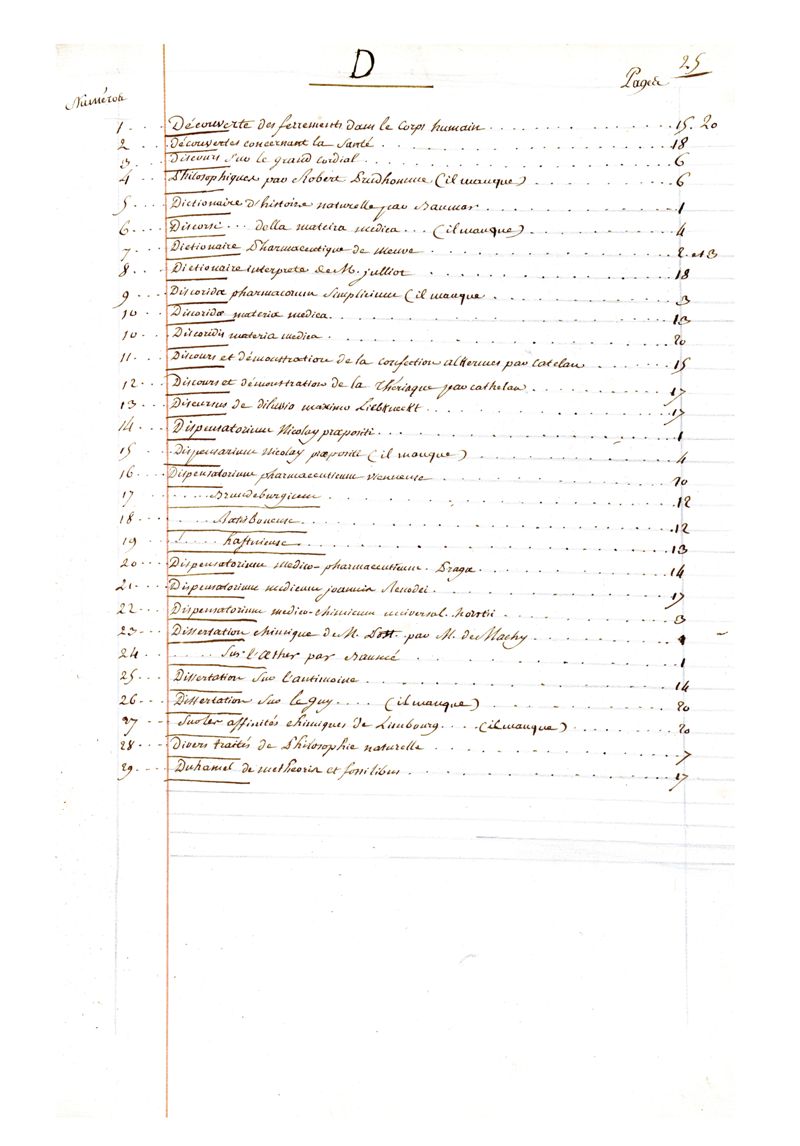 D
25
Numéros
Pages
1 .... Découverte des ferrements dans le Corps humain ........ 15. 20
2 .... découvertes concernant la Santé ........ 18
3 .... Discours sur le grand cordial ........ 6
4 .... Philosophiques par Robert Prudhomme (il manque) ........ 6
5 .... Dictionaire d'histoire naturelle par Baumar ........ 1
6 .... Discorsi ... della mateira medica ... (il manque) ........ 4
7 .... Dictionaire Pharmaceutique de meuve ........ 2. et 13
8 .... Dictionaire interprete de M. julliot ........ 18
9 .... Discoridæ pharmacorum Simplicium (il manque ........ 3
10 .... Discoridæ materiæ medica ........ 13
10 .... Discoridis materia medica ........ 20
11 .... Discours et démonstration de la confection alkermes par Catelan ........ 15
12 .... Discours et démonstration de la Thériaque par cathelan ........ 17
13 .... Discursus de diluvio maximo Liebknecht ........ 17
14 .... Dispensatorium Nicolay præpositi ........ 1
15 .... Dispensarium Nicolay præpositi (il manque) ........ 4
16 .... Dispensatorium pharmaceuticum viennense ........ 10
17 .... Brandeburgicum ........ 12
18 .... Ratisbonense ........ 12
19 .... hafniense ........ 13
20 .... Dispensatorium medico-pharmaceuticum. Praga ........ 14
21 .... Dispensatorium medicum joannis Renodei ........ 17
22 .... Dispensatorium medico-chimicum universal. horstii ........ 3
23 .... Dissertation chimique de M. Pott par M. de Machy ........ 1
24 .... Sur l'Æther par Baumé ........ 1
25 .... Dissertation Sur l'antimoine ........ 14
26 .... Dissertation Sur le guy .... (il manque) ........ 20
27 .... Sur les affinités chimiques de Limbourg .... (il manque) ........ 20
28 .... Divers traités de Philosophie naturelle ........ 7
29 .... Duhamel de metheoris et fossilibus ........ 17